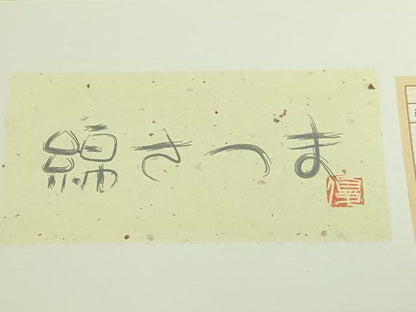 綿さつま